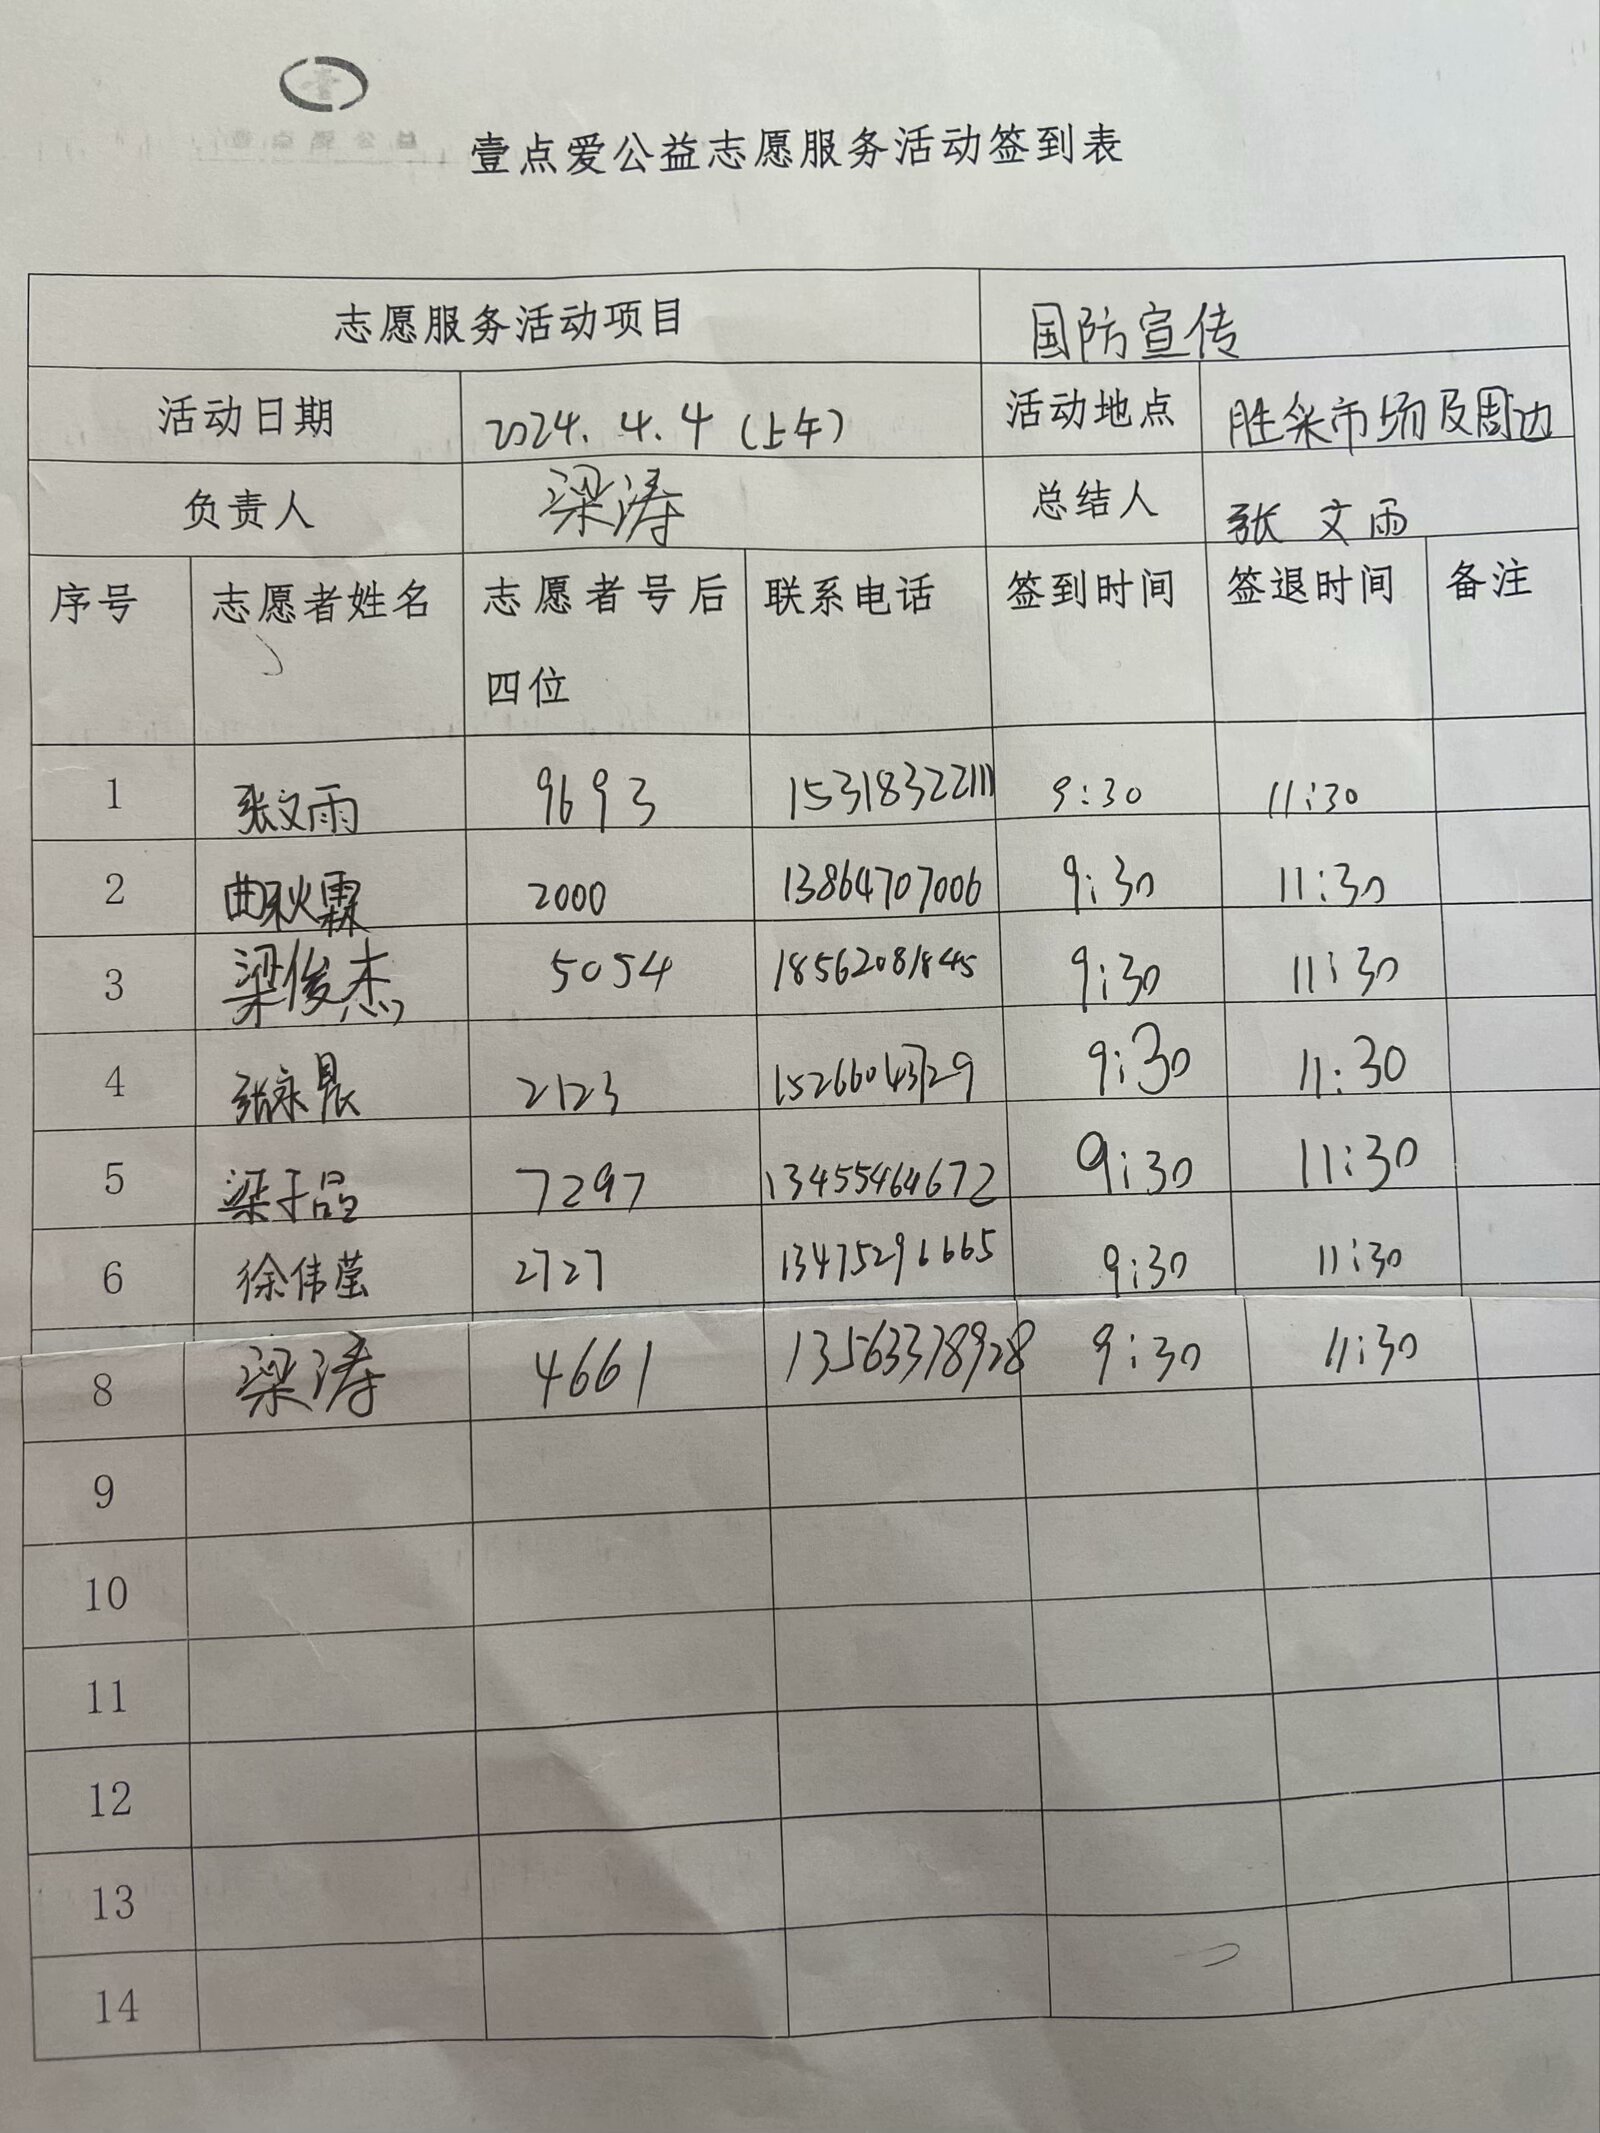 壹点爱公益志愿服务活动签到表
志愿服务活动项目 国防宣传
活动日期 2024.4.4(上午) 活动地点 胜采市场及周边
负责人 梁涛 总结人 张文雨
序号 志愿者姓名 志愿者号后四位 联系电话 签到时间 签退时间 备注
1 张文雨 9693 15318322111 9:30 11:30
2 曲秋霖 2000 13864707006 9:30 11:30
3 梁俊杰 5054 18562081845 9:30 11:30
4 张永晨 2123 15266043729 9:30 11:30
5 梁于晶 7297 13455464672 9:30 11:30
6 徐伟莹 2727 13475296665 9:30 11:30
8 梁涛 4661 13563378928 9:30 11:30
9
10
11
12
13
14